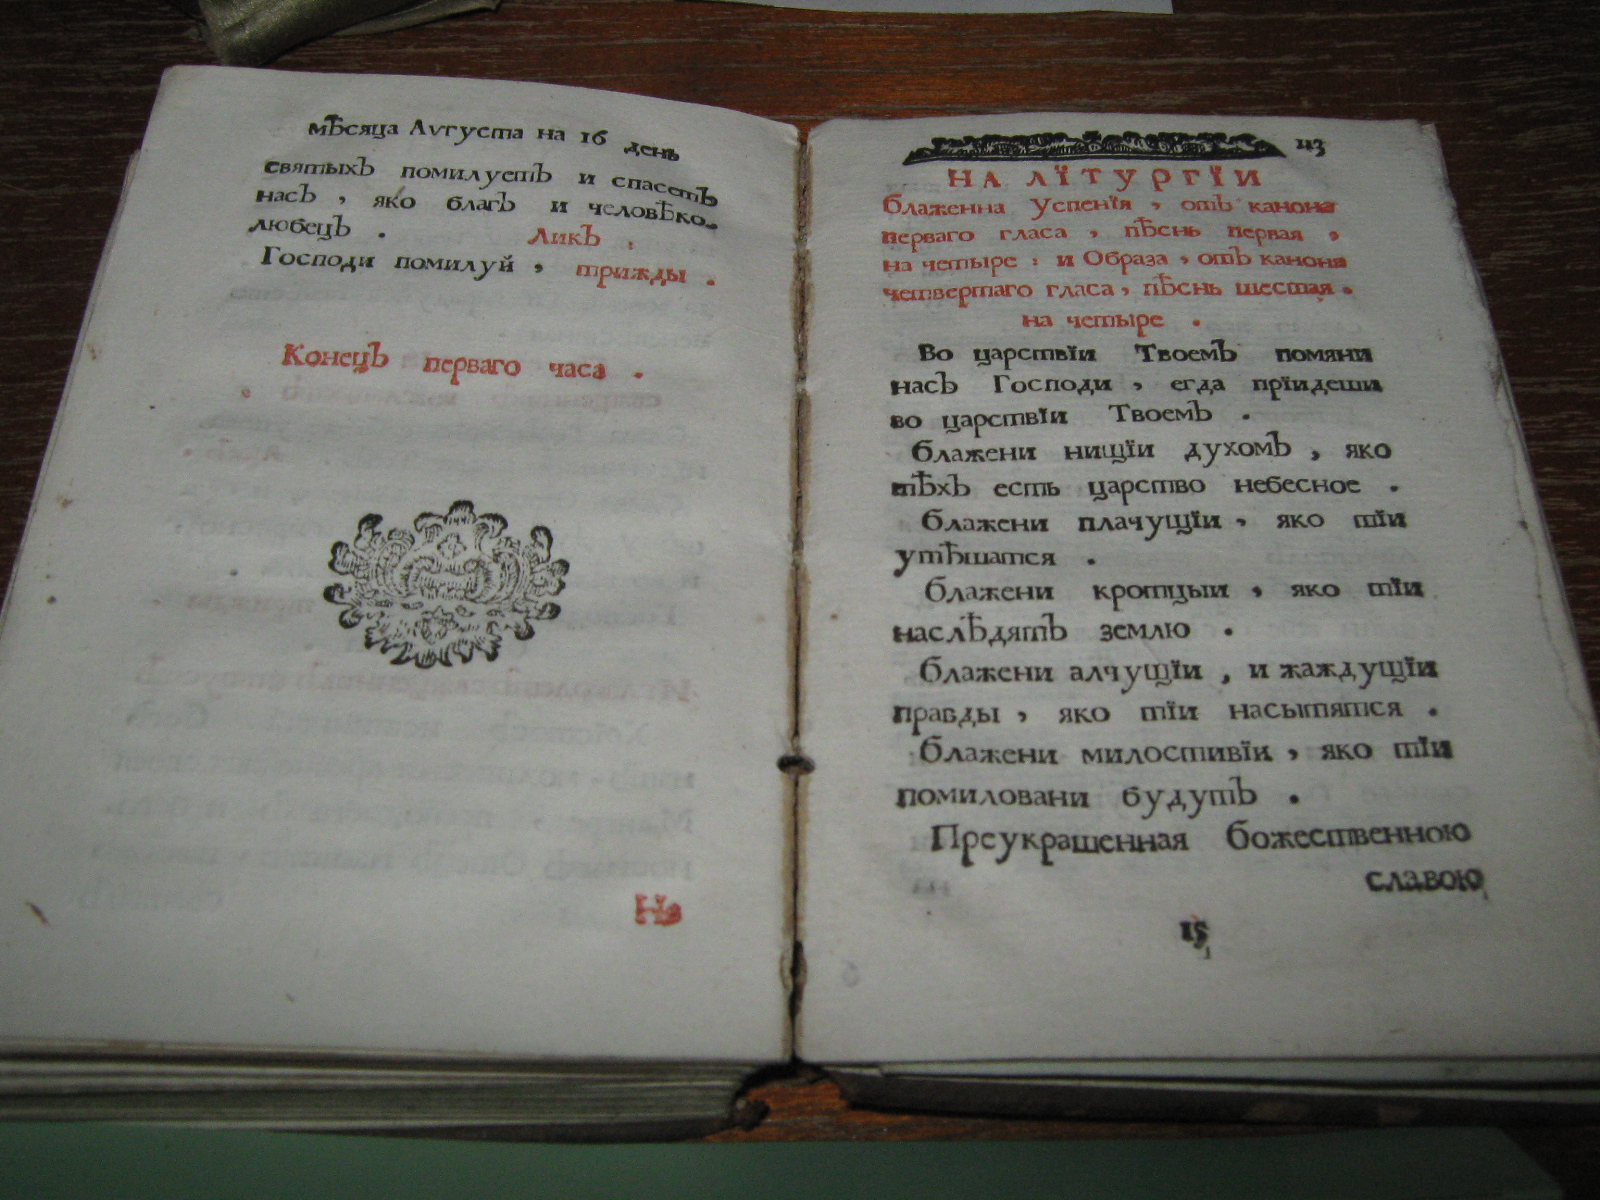 мѢсяца Аѵгуста на 16 день
святыхЪ помилуетЪ и спасетЪ
насЪ , яко благЪ и человѢко-
любецЪ . ЛикЪ .
Господи помилуй , трижды .
КонецЪ перваго часа .
На
113
НА ЛЇТУРГЇИ
блаженна Успенїя , отЪ канона
перваго гласа , пѢснь первая ,
на четыре : и Образа , отЪ канона
четвертаго гласа , пѢснь шестая .
на четыре .
Во царствїи ТвоемЪ помяни
насЪ Господи , егда прїидеши
во царствїи ТвоемЪ .
блажени нищїи духомЪ , яко
тѢхЪ есть царство небесное .
блажени плачущїи , яко тїи
утѢшатся .
блажени кротцыи , яко тїи
наслѢдятЪ землю .
блажени алчущїи , и жаждущїи
правды , яко тїи насытятся .
блажени милостивїи , яко тїи
помиловани будутЪ .
Преукрашенная божественною
славою
15